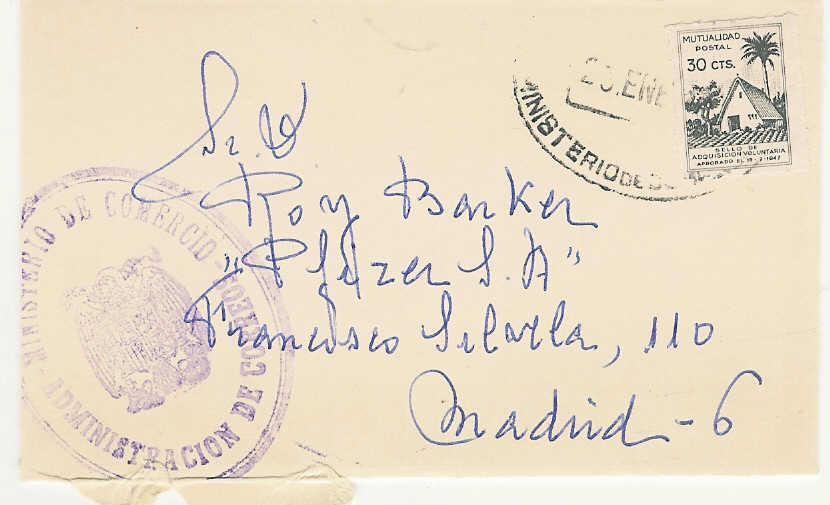 MUTUALIDAD
POSTAL
30 CTS.
SELLO DE
ADQUISICION VOLUNTARIA
APROBADO EL 19-2-1947
ENE
MINISTERIO DE
Sr. D
Roy Barker
"Pfizer S.A"
Francisco Silvela, 110
Madrid - 6
MINISTERIO DE COMERCIO - ADMINISTRACION DE CORREOS -